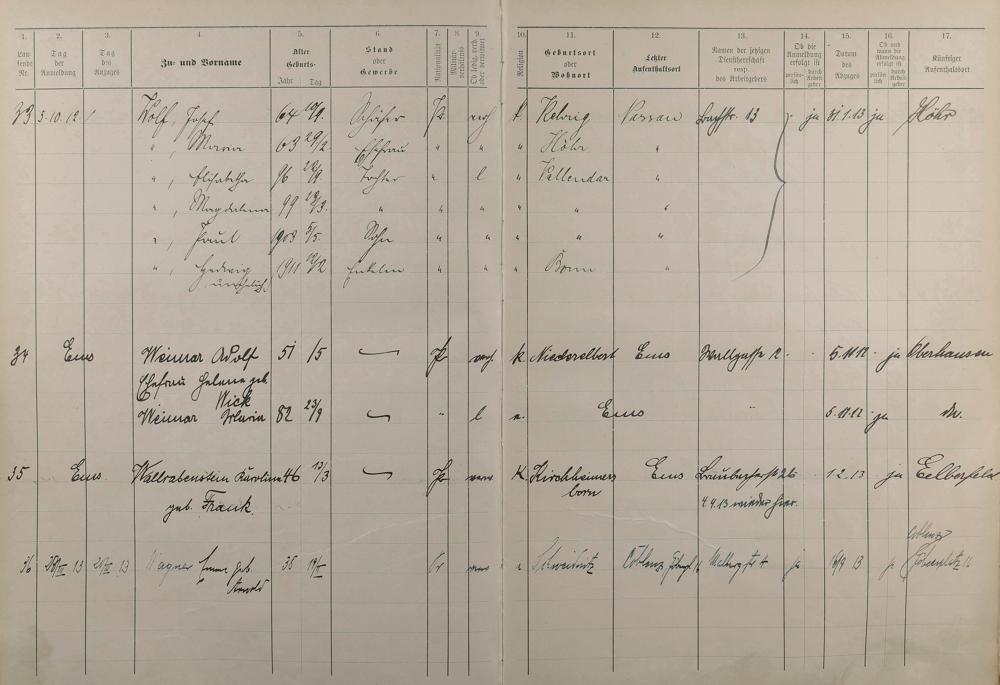 1. 2. 3. 4. 5. 6. 7. 8. 9. 10. 11. 12. 13. 14. 15. 16. 17.
Lau-fende Nr. Tag der Anmeldung Tag des Anzuges Zu- und Vorname Alter Geburts- Jahr Tag Stand oder Gewerbe Nationalität Militär-verhältnis Ob ledig, verh. oder verwitwet Religion Geburtsort oder Wohnort Letzter Aufenthaltsort Namen der jetzigen Dienstherrschaft resp. des Arbeitgebers Ob die Anmeldung erfolgt ist persön-lich durch Arbeit-geber Datum des Abzuges Ob und wann die Abmeldung erfolgt ist persön-lich durch Arbeit-geber Künftiger Aufenthaltsort
33 5.10.12 Wolf, Josef 64 10/9. Schäfer Pr verh k. Nassau Bachstr. 13 ja 31.1.13 ja Höhr
", Maria 63 29/2 Ehefrau " " " Höhr "
", Elisabetha 96 Tochter " l " Vallendar "
", Magdalena 99 " " " " " "
", Paul 1903 5/5. Sohn " " " " "
", Hedwig 1911 12/2 Enkelin " " " Bonn "
unehelich
34 Ems Weimar Adolf 51 1/5 Pr verh k. Niederelbert Ems Wallgasse 12. 5.11.12 ja Oberhausen
Ehefrau Helene geb.
Wick
Weimar Maria 82 23/9 " l Ems " 5.11.12 ja do.
35 Ems Wallrabenstein Karoline 46 13/3 Pr verw K. Kirchheimers Ems 1.2.13 ja Eelberfeld
born
geb. Frank. 4.4.13 wieder hier.
Coblenz
36 13 13 Wagner Emma geb 35 Pr Schweidnitz Coblenz ja 16/9 13 ja
Arnold